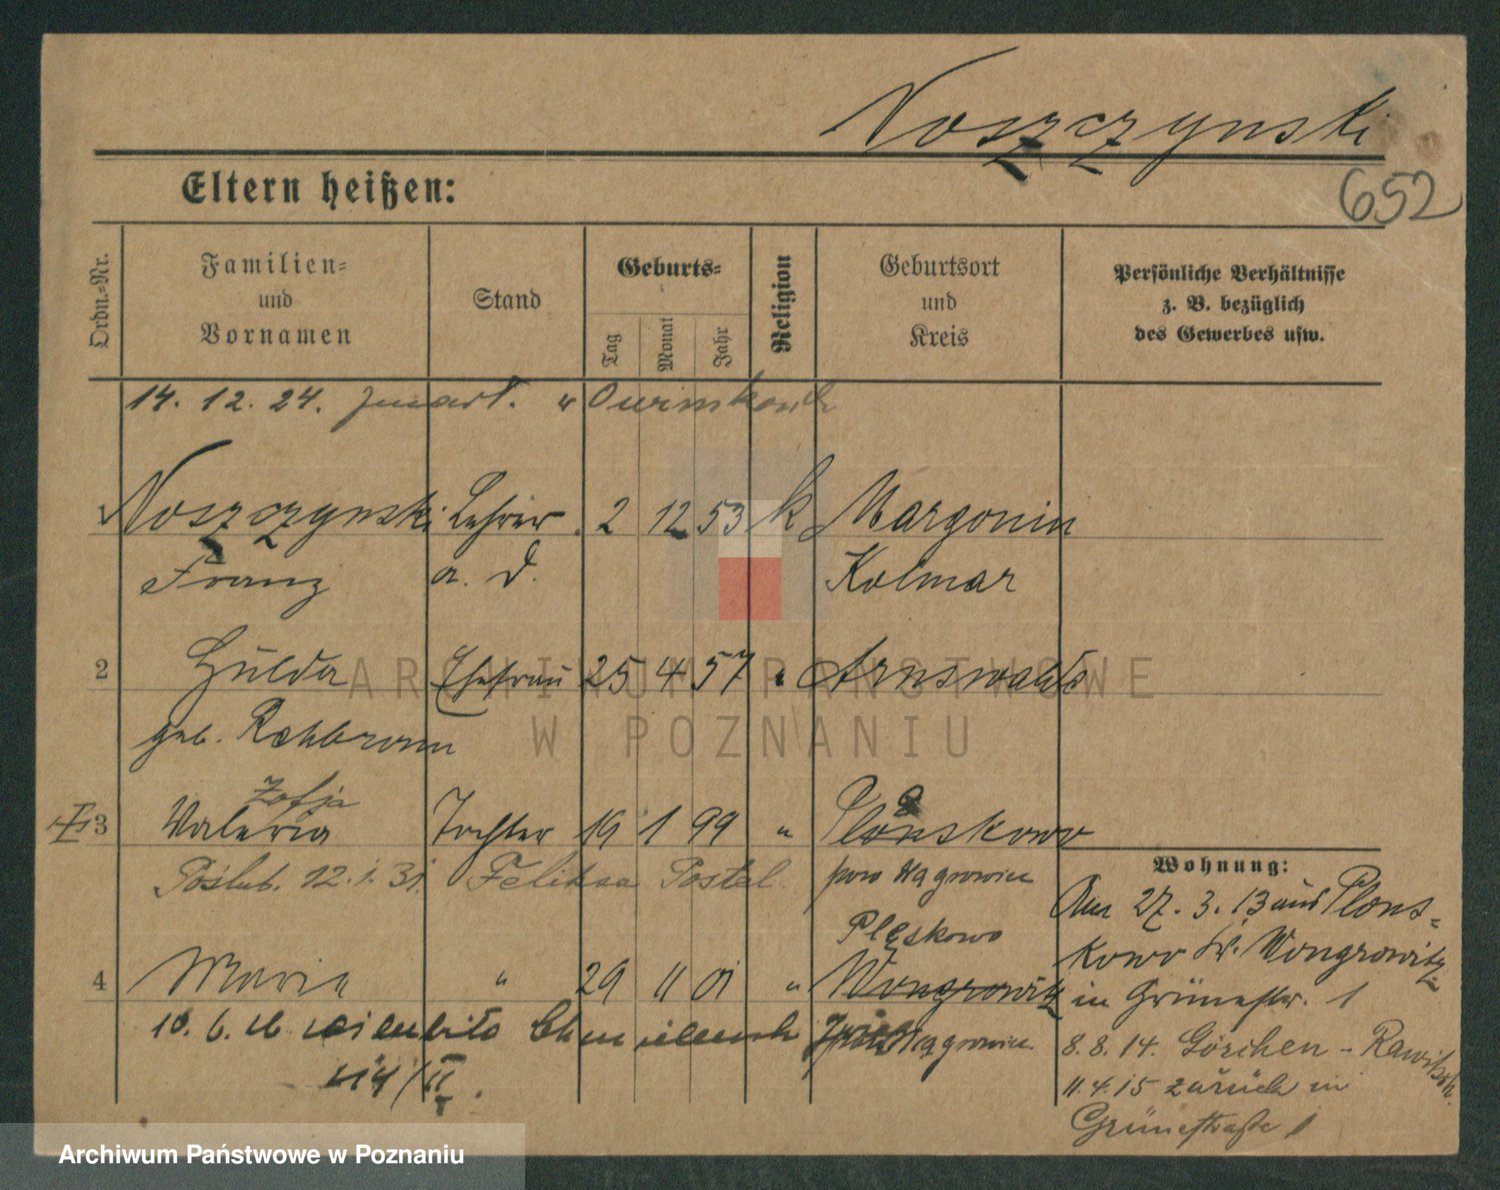 Noszczynski
652
Eltern heißen:
Ordn.-Nr.
Familien- und Vornamen
Stand
Geburts-
Tag
Monat
Jahr
Religion
Geburtsort und Kreis
Persönliche Verhältnisse z. B. bezüglich des Gewerbes usw.
14. 12. 24. zmarł. w
1 Noszczynski Lehrer 2 12 53 k Margonin
Franz a. D. Kolmar
2 Hulda Ehefrau 25 4 57 " Arnswalde
geb. Rehbronn
Zofja
3 Valeria Tochter 19 1 99 " Plonskowo
Poślub. 12.1.31. Feliksa Postal. pow Wągrowiec
Plęskowo
4 Maria " 29 11 01 " Wongrowitz
10. 6. pow Wągrowiec
Wohnung:
Am 27. 3. 13 aus Plons-
kowo Kr. Wongrowitz
in Grünestr. 1
8.8.14. Görchen - Rawitsch.
11.4.15 zurück in
Grünestraße 1
ARCHIWUM PAŃSTWOWE
W POZNANIU
Archiwum Państwowe w Poznaniu